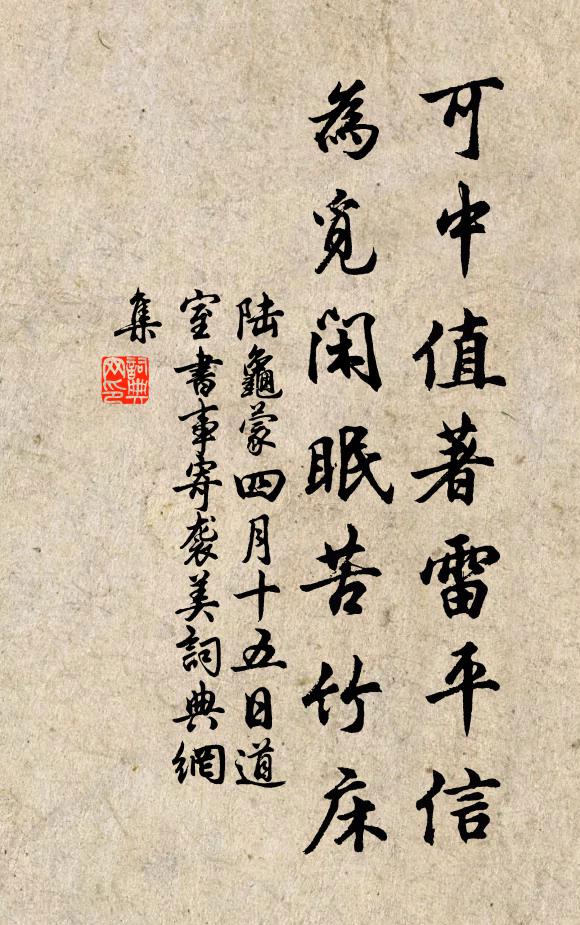 可中值著雷平信
為覓閑眠苦竹床
陸龜蒙四月十五日道
室書事寄襲美詞典網
集
詞典
网印